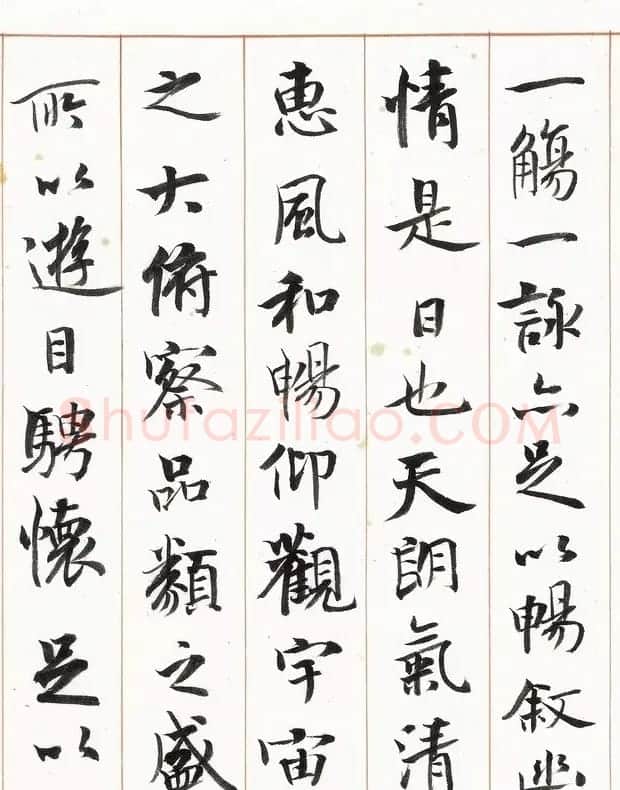 一觴一詠亦足以暢叙幽
情是日也天朗氣清
惠風和暢仰觀宇宙
之大俯察品類之盛
所以遊目騁懷足以
Shufaziliao.COM